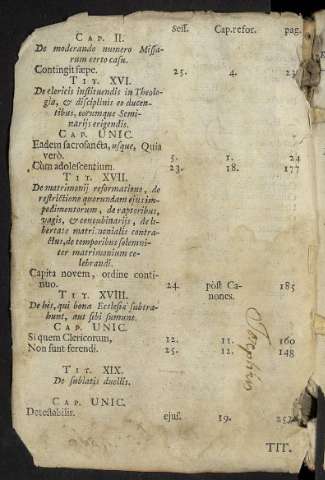 CAP. II. Sess. Cap.refor. pag.
De moderando numero Missa-
rum certo casu.
Contingit sæpe. 25. 4.
TIT. XVI.
De clericis instituendis in Theolo-
gia, & disciplinis ec ducen-
tibus, eorumque Semi-
narijs erigendis.
CAP. UNIC.
Eadem sacrosancta, usque, Quia
verò. 5. 1. 24
Cùm adolescentium. 23. 18. 177
TIT. XVII.
De matrimonij reformatione, de
restrictione quorundam ejus im-
pedimentorum, de raptoribus,
vagis, & concubinarijs, de li-
bertate matrimonialis contra-
ctus, de temporibus solemni-
ter matrimonium ce-
lebrandi.
Capita novem, ordine conti-
nuo. 24. pòst Ca- 185
nones.
TIT. XVIII.
De his, qui bona Ecclesiæ subtra-
hunt, aut sibi sumunt.
CAP. UNIC.
Si quem Clericorum, 12. 11. 160
Non sunt ferendi. 25. 12. 148
TIT. XIX.
De sublatis duellis.
CAP. UNIC.
Detestabilis. ejus. 19.
TIT.